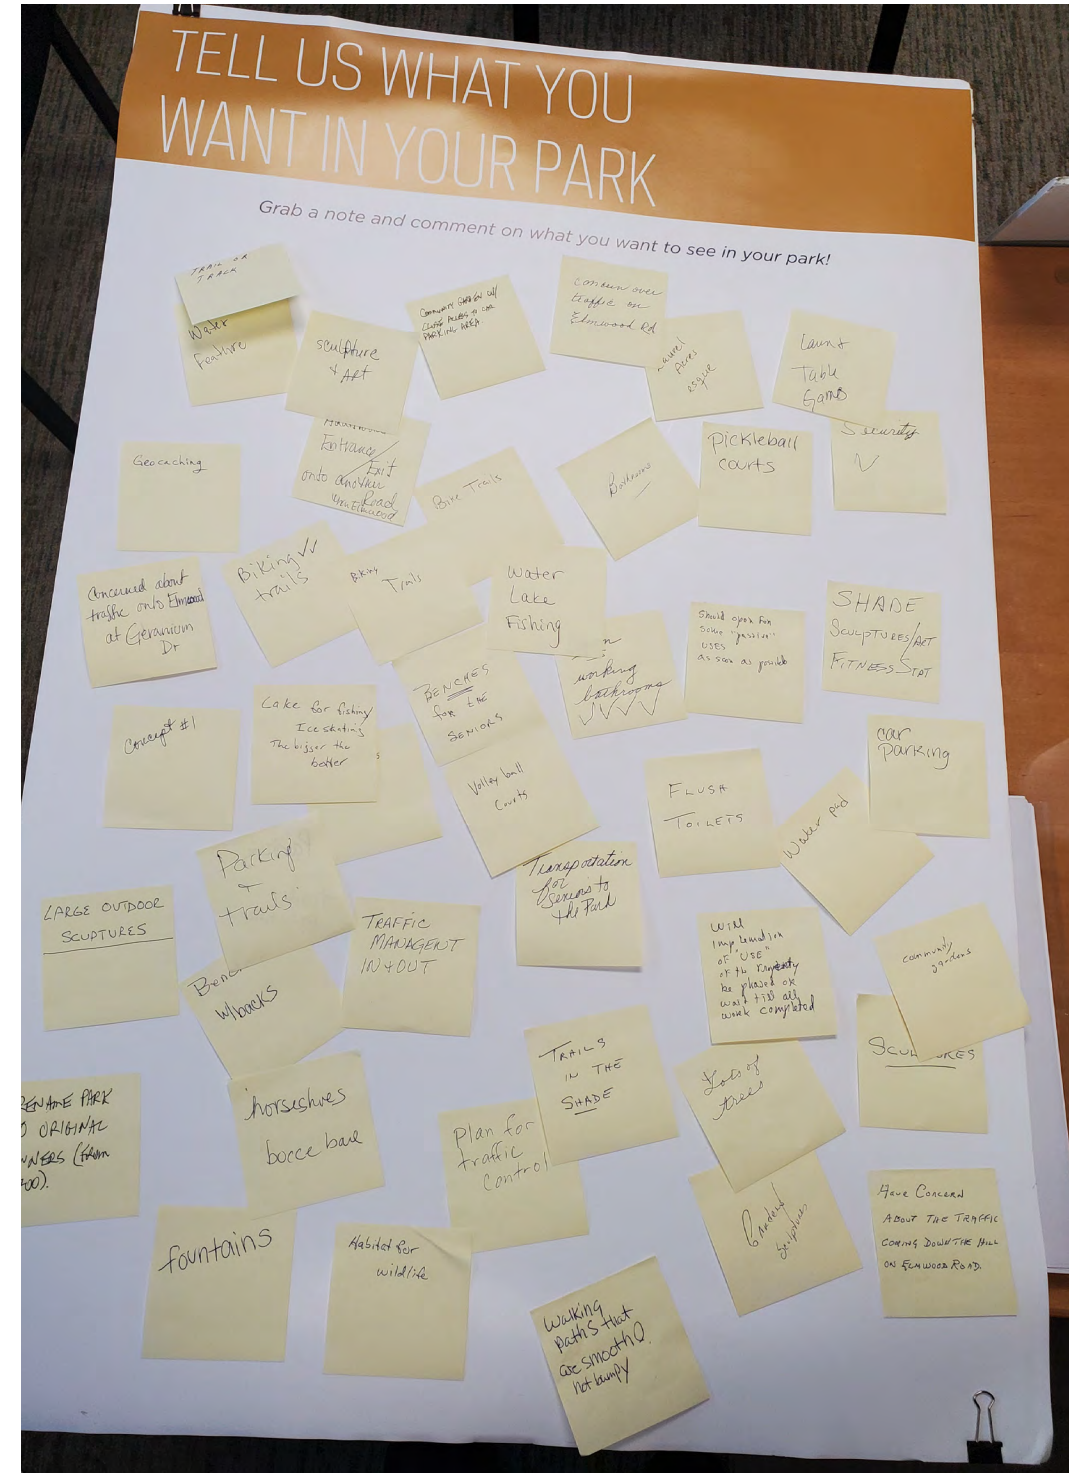 TELL US WHAT YOU
WANT IN YOUR PARK
Grab a note and comment on what you want to see in your park!
TRAIL OR
TRACK
Water
Feature
sculpture
+ ART
COMMUNITY GARDEN W/
CLOSE ACCESS TO CAR
PARKING AREA
concern over
traffic on
Elmwood Rd
Laurel
Acres
esque
Lawn &
Table
Games
Geocaching
Entrance/
Exit
onto another
Road
Elmwood
Bike Trails
Bathrooms
Pickleball
courts
Security
Concerned about
traffic onto Elmwood
at Geranium
Dr
Biking
trails
Biking
Trails
Water
Lake
Fishing
working
bathrooms
Should open for
some "passive"
USES
as soon as possible
SHADE
SCULPTURES/ART
FITNESS STAT
Concept #1
Lake for fishing
Ice skating
The bigger the
better
BENCHES
for the
SENIORS
Volley ball
Courts
FLUSH
TOILETS
Water pad
car
parking
LARGE OUTDOOR
SCUPTURES
Parking
+
trails
TRAFFIC
MANAGENT
IN + OUT
Transportation
for
Seniors to
the Park
Will
implementation
of "USE"
of the property
be phased or
wait till all
work completed
community
gardens
Benc
w/backs
TRAILS
IN THE
SHADE
Lots of
trees
SCU RES
RENAME PARK
ORIGINAL
horseshoes
bocce ball
Plan for
traffic
Control
Gardens/
Sculptures
HAVE CONCERN
ABOUT THE TRAFFIC
COMING DOWN THE HILL
ON ELMWOOD ROAD.
fountains
Habitat for
wildlife
Walking
paths that
are smooth
not bumpy